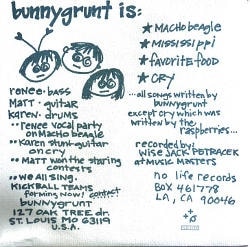 bunnygrunt is:
★MACHO beagle
★MISSISSIPPI
★FAVORITE·FOOD
★CRY
...all songs written by
bunnygrunt
except cry which was
written by the
raspberries...
recorded by:
WISE JACK PETRACEK
at MUSIC MASTERS
no life records
BOX 461778
LA, CA 90046
renee·bass
Matt·guitar
karen·drums
··renee vocal party
on MACHO beagle
··Karen stunt-guitar
on cry
··Matt won the staring
contests
··we all sing.
KICKBALL TEAMS
forming Now! contact
bunnygrunt
127 OAK TREE dr.
ST. LOUIS MO 63119
U.S.A.